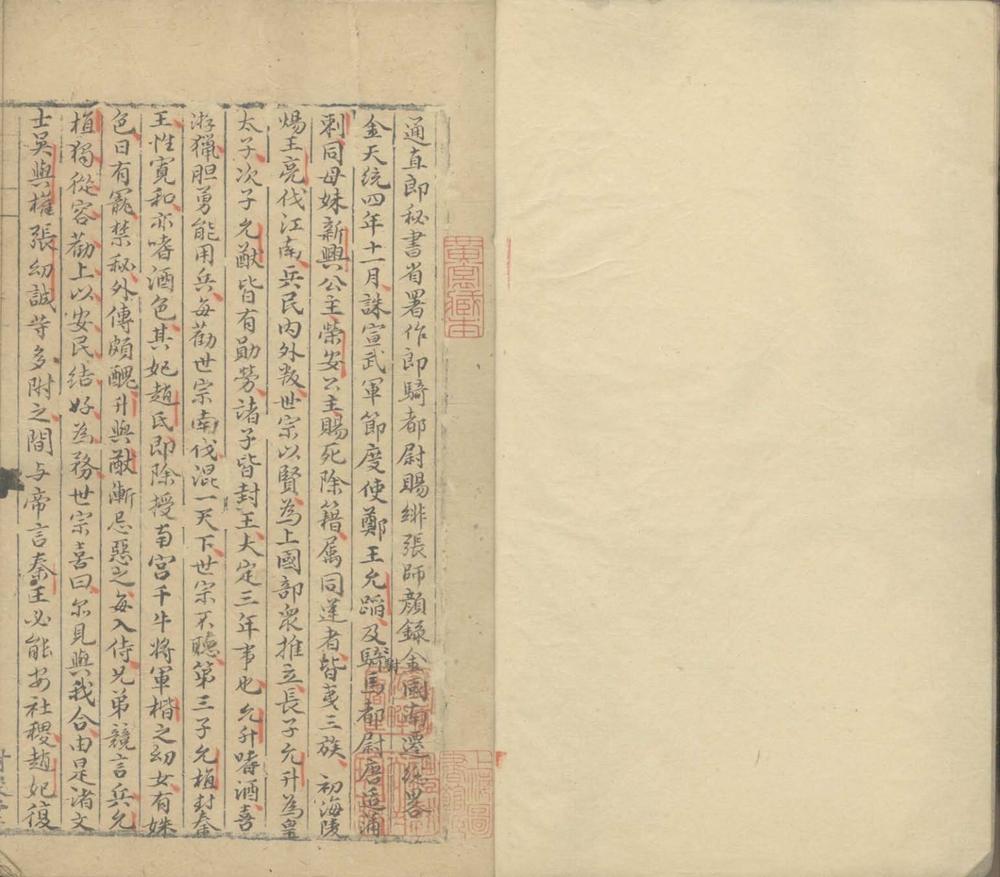 通直郎秘書省署作郎騎都尉賜緋張師顏錄金國南遷錄畧
金天統四年十一月誅宣武軍節度使鄭王允蹈及駙馬都尉唐适蒲
剌同母妹新興公主榮安公主賜死除籍属同逆者皆夷三族初海陵
煬王亮伐江南兵民内外叛世宗以賢為上國部衆推立長子允升為皇
太子次子允猷皆有勛勞諸子皆封王大定三年事也允升嗜酒喜
游獵胆勇能用兵每勸世宗南伐混一天下世宗不聽第三子允植封秦
王性寬和亦嗜酒色其妃趙氏即除授南宫千牛將軍楷之幼女有姝
色日有寵禁秘外傳頗醜升與猷漸忌惡之每入侍兄弟競言兵允
植獨從容勸上以安民結好為務世宗喜曰尔見與我合由是諸文
士吳與權張幼誠等多附之間与帝言秦王必能安社稷趙妃復